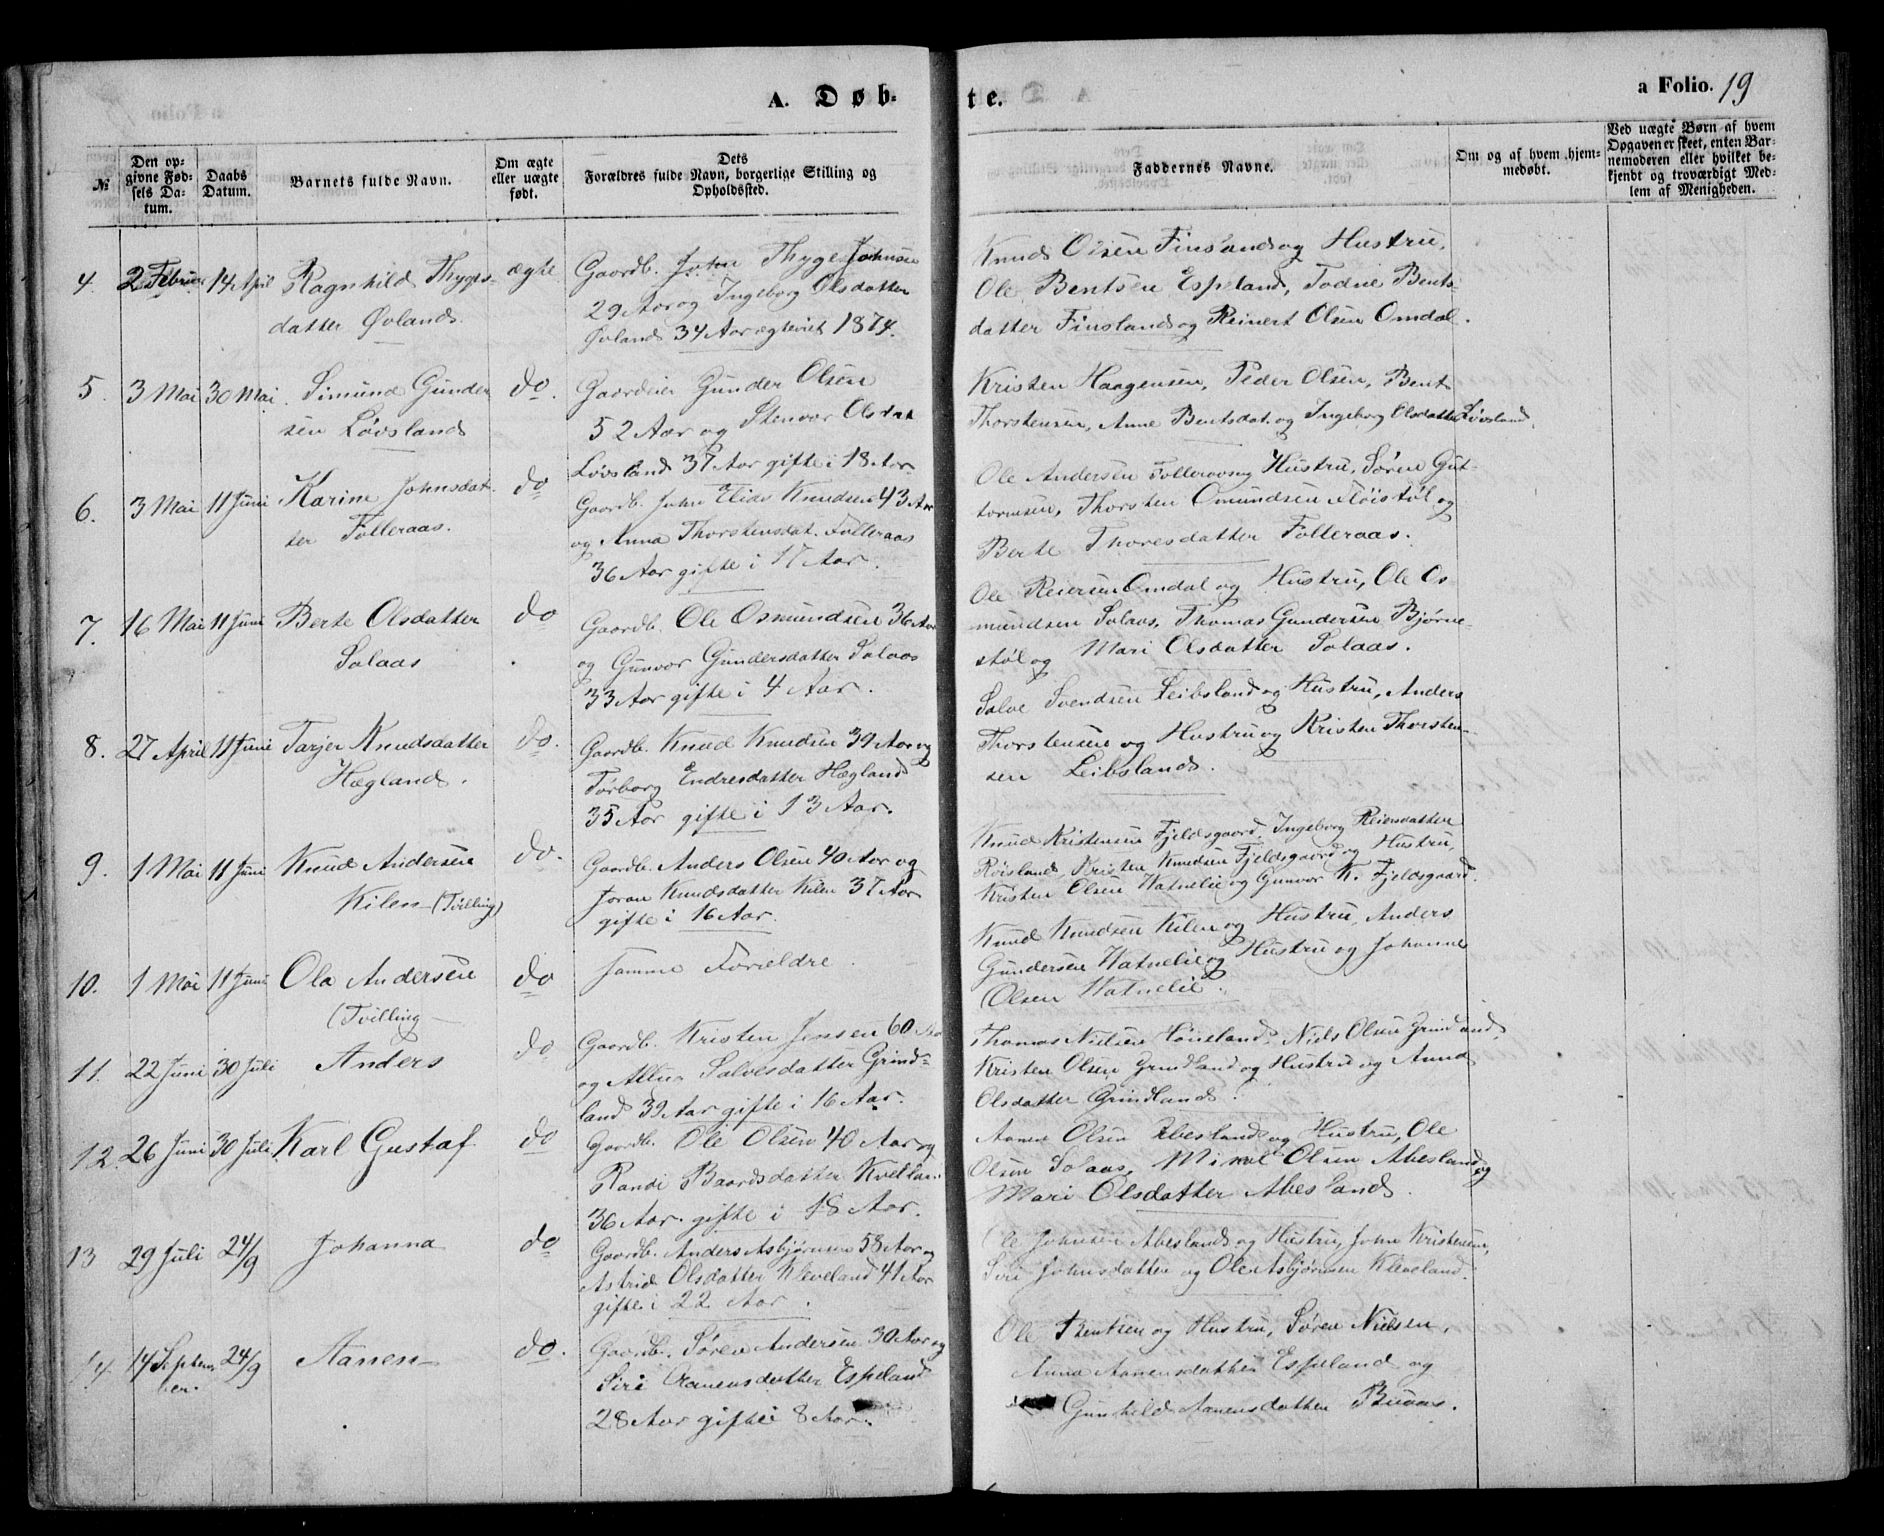 A. Døbte.
a Folio. 19
№
Den opgivne Fødsels Datum.
Daabs Datum.
Barnets fulde Navn.
Om ægte eller uægte født.
Dets Forældres fulde Navn, borgerlige Stilling og Opholdssted.
Faddernes Navne.
Om og af hvem hjemmedøbt.
Ved uægte Børn af hvem Opgaven er skeet, enten Barnemoderen eller hvilket bekjendt og troværdigt Medlem af Menigheden.
4. 2 Februar 14 April Ragnhild Thyges- ægte
datter Øvland
Gaardb. John Thyge Johnsen
29 Aar og Ingeborg Olsdatter
Øvland 34 Aar ægteviet 1874.
Knud Olsen Finsland og Hustru,
Ole Bentsen Espeland, Todne Bents-
datter Finsland og Reinert Olsen Omdal.
5. 3 Mai 30 Mai Simund Gunder do.
sen Løvsland
Gaardeier Gunder Olsen
52 Aar og Stenvor Olsdat
Løvsland 37 Aar gifte i 18 Aar.
Kristen Haagensen, Peder Olsen, Bent
Thorstensen, Anne Bentsdat. og Ingeborg Olsdatter Løvsland.
6. 3 Mai 11 Juni Karine Johnsdat- do
ter Folleraas.
Gaardb. John Elias Knudsen 43 Aar
og Anna Thorstensdat. Folleraas
36 Aar gifte i 17 Aar.
Ole Andersen Folleraas og Hustru, Søren Gut-
tormsen, Thorsten Omundsen Fløistøl og
Berte Thoresdatter Folleraas.
7. 16 Mai 11 Juni Berte Olsdatter do
Solaas
Gaardb. Ole Osmundsen 36 Aar
og Gunvor Gundersdatter Solaas
33 Aar gifte i 4 Aar.
Ole Reiersen Omdal og Hustru, Ole Os-
mundsen Solaas, Thomas Gundersen Bjørne-
støl og Mari Olsdatter Solaas.
8. 27 April 11 Juni Tarjer Knudsdatter do.
Hægland.
Gaardb. Knud Knudsen 39 Aar og
Torborg Endresdatter Hægland
35 Aar gifte i 13 Aar.
Salve Svendsen Leibsland og Hustru, Anders
Thorstensen og Hustru og Kristen Thorsten-
sen Leibsland.
9. 1 Mai 11 Juni Knud Andersen do.
Kilen (Tvilling)
Gaardb. Anders Olsen 40 Aar og
Joran Knudsdatter Kilen 37 Aar
gifte i 16 Aar.
Knud Kristensen Fjeldsgaard, Ingeborg Reiersdatter
Røisland, Kristen Knudsen Fjeldsgaard og Hustru,
Kristen Olsen Hatnelie og Gunvor K. Fjeldsgaard.
10. 1 Mai 11 Juni Ola Andersen do
(Tvilling
Samme Forældre.
Knud Knudsen Kilen og Hustru, Anders
Gundersen Hatnelie og Hustru og Johanne
Olsen Hatnelie.
11. 22 Juni 30 Juli Anders do
Gaardb. Kristen Jensen 60 Aar
og Salvesdatter Grind-
land 39 Aar gifte i 16 Aar.
Thomas Nielsen Hønesland, Niels Olsen Grindland,
Kristen Olsen Grindland og Hustru og Anna
Olsdatter Grindland.
12. 26 Juni 30 Juli Karl Gustaf do
Gaardb. Ole Olsen 40 Aar og
Randi Baardsdatter
36 Aar gifte i 18 Aar.
Aanen Olsen Abesland og Hustru, Ole
Olsen Solaas, Mikal Olsen Abesland og
Mari Olsdatter Abesland.
13 29 Juli 24/9 Johanna do
Gaardb. Anders Asbjørnsen 58 Aar og
Astrid Olsdatter Kleveland 41 Aar
gifte i 22 Aar.
Ole Johnsen Abesland og Hustru, John Kristensen,
Siri Johnsdatter og Ole Asbjørnsen Kleveland.
14. 14 Septem- 24/9 Aanen do.
ber.
Gaardb. Søren Andersen 30 Aar og
Siri Aanensdatter Espeland
28 Aar gifte i 8 Aar.
Ole Bentsen og Hustru, Søren Nielsen,
Anna Aanensdatter Espeland og
Gunhild Aanensdatter Buaas.